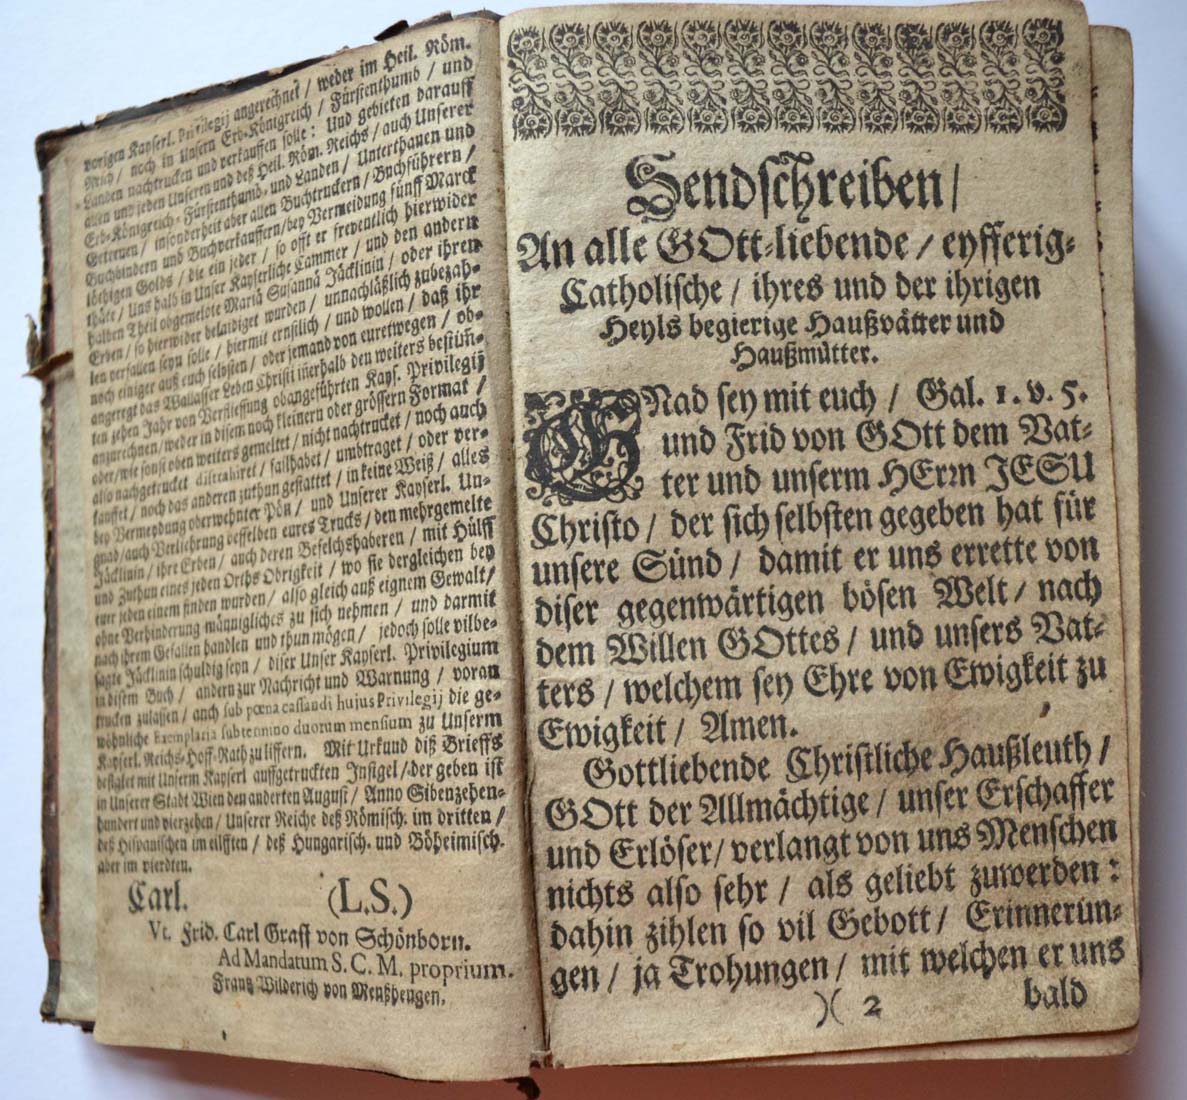 vorigen Kayserl. Privilegij angerechnet / weder im Heil. Röm.
Reich / noch in Unsern Erb-Königreich / Fürstenthumb / und
Landen nachtrucken und verkauffen solle: Und gebieten darauff
allen und jeden Unseren und deß Heil. Röm. Reichs / auch Unserer
Erb-Königreich- Fürstenthumb- und Landen / Unterthanen und
Getreuen / insonderheit aber allen Buchtruckern / Buchführern /
Buchbindern und Buchverkauffern / bey Vermeidung fünff Marck
löthigen Golds / die ein jeder / so offt er freventlich hierwider
thäte / Uns halb in Unser Kayserliche Cammer / und den andern
halben Theil obgemelte Mariä Susannä Jäcklinin / oder ihren
Erben / so hierwider belaidiget wurden / unnachläßlich zubezah-
len verfallen seyn solle / hiermit ernstlich / und wollen / daß ihr
noch einiger auß euch selbsten / oder jemand von euretwegen / ob-
angeregt das Wallasser Leben Christi iñerhalb den weiters bestim̃-
ten zehen Jahr von Verfliessung obangeführten Kays. Privilegij
anzurechnen / weder in disem noch kleinern oder grössern Format /
oder / wie sonst oben weiters gemeltet / nicht nachtrucket / noch auch
also nachgetrucket distrahiret / failhabet / umbtraget / oder ver-
kauffet / noch das anderen zuthun gestattet / in keine Weiß / alles
bey Vermeydung oberwehnter Pön / und Unserer Kayserl. Un-
gnad / auch Verliehrung desselben eures Trucks / den mehrgemelte
Jäcklinin / ihre Erben / auch deren Befelchshaberen / mit Hülff
und Zuthun eines jeden Orths Obrigkeit / wo sie dergleichen bey
euer jeden einem finden wurden / also gleich auß eignem Gewalt /
ohne Verhinderung männigliches zu sich nehmen / und darmit
nach ihrem Gefallen handlen und thun mögen / jedoch solle vilbe-
sagte Jäcklinin schuldig seyn / diser Unser Kayserl. Privilegium
in disem Buch / andern zur Nachricht und Warnung / voran
trucken zulassen / auch sub pœna cassandi hujus Privilegij die ge-
wöhnliche Exemplaria sub termino duorum mensium zu Unserm
Kayserl. Reichs-Hoff-Rath zu liffern. Mit Urkund diß Brieffs
besiglet mit Unserm Kayserl auffgetruckten Insigel / der geben ist
in Unserer Stadt Wien den anderten August / Anno Sibenzehen-
hundert und vierzehen / Unserer Reiche deß Römisch. im dritten /
deß Hispanischen im eilfften / deß Hungarisch. und Böheimisch.
aber im vierdten.
Carl. (L.S.)
Vt. Frid. Carl Graff von Schönborn.
Ad Mandatum S. C. M. proprium.
Frantz Wilderich von Menßhengen.
Sendschreiben /
An alle GOtt-liebende / eyfferig-
Catholische / ihres und der ihrigen
Heyls begierige Haußvätter und
Haußmütter.
GNad sey mit euch / Gal. 1. v. 5.
und Frid von GOtt dem Vat-
ter und unserm HErrn JESU
Christo / der sich selbsten gegeben hat für
unsere Sünd / damit er uns errette von
diser gegenwärtigen bösen Welt / nach
dem Willen GOttes / und unsers Vat-
ters / welchem sey Ehre von Ewigkeit zu
Ewigkeit / Amen.
Gottliebende Christliche Haußleuth /
GOtt der Allmächtige / unser Erschaffer
und Erlöser / verlangt von uns Menschen
nichts also sehr / als geliebt zuwerden:
dahin zihlen so vil Gebott / Erinnerun-
gen / ja Trohungen / mit welchen er uns
)( 2 bald